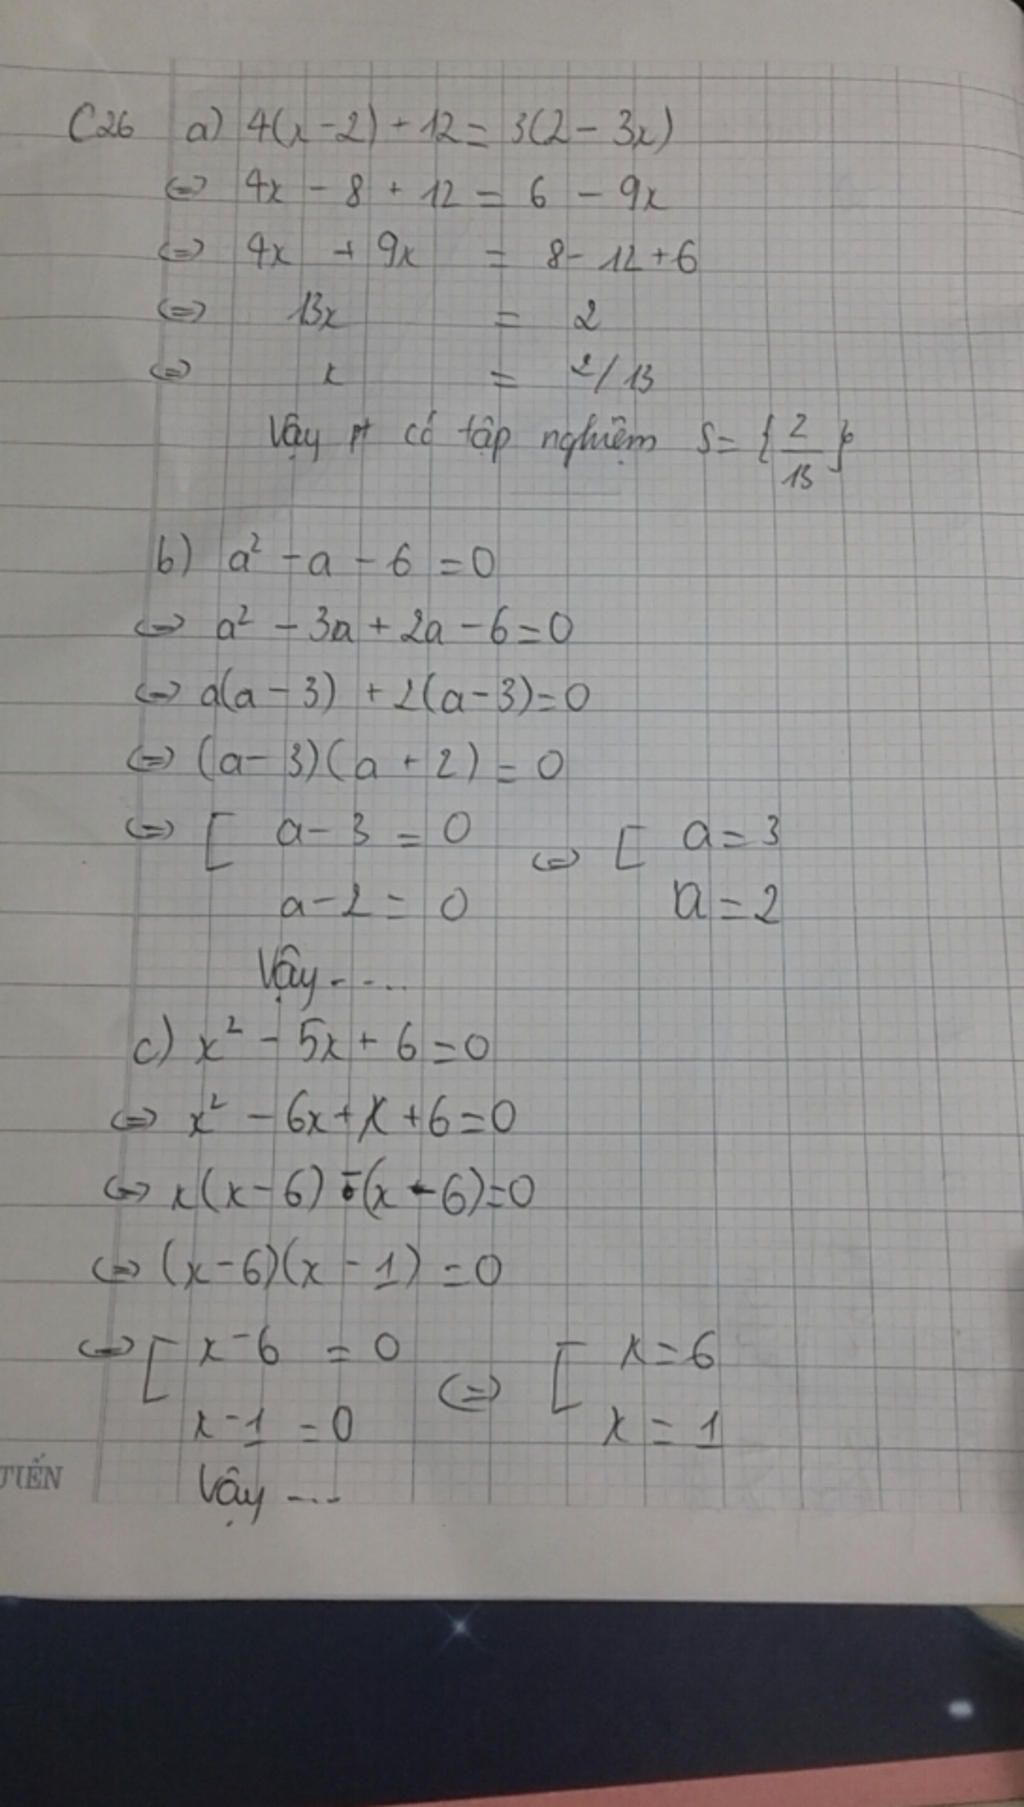 C26 a) 4(x-2) + 12 = 3(2 - 3x)
<=> 4x - 8 + 12 = 6 - 9x
<=> 4x + 9x = 8 - 12 + 6
<=> 13x = 2
<=> x = 2/13
Vậy pt có tập nghiệm S = {2/13}
b) a² - a - 6 = 0
<=> a² - 3a + 2a - 6 = 0
<=> a(a - 3) + 2(a - 3) = 0
<=> (a - 3)(a + 2) = 0
<=> [ a - 3 = 0 <=> [ a = 3
a - 2 = 0 a = 2
Vậy ....
c) x² - 5x + 6 = 0
<=> x² - 6x + x + 6 = 0
<=> x(x - 6) - (x - 6) = 0
<=> (x - 6)(x - 1) = 0
<=> [ x - 6 = 0 <=> [ x = 6
x - 1 = 0 x = 1
Vậy ...
TIẾN